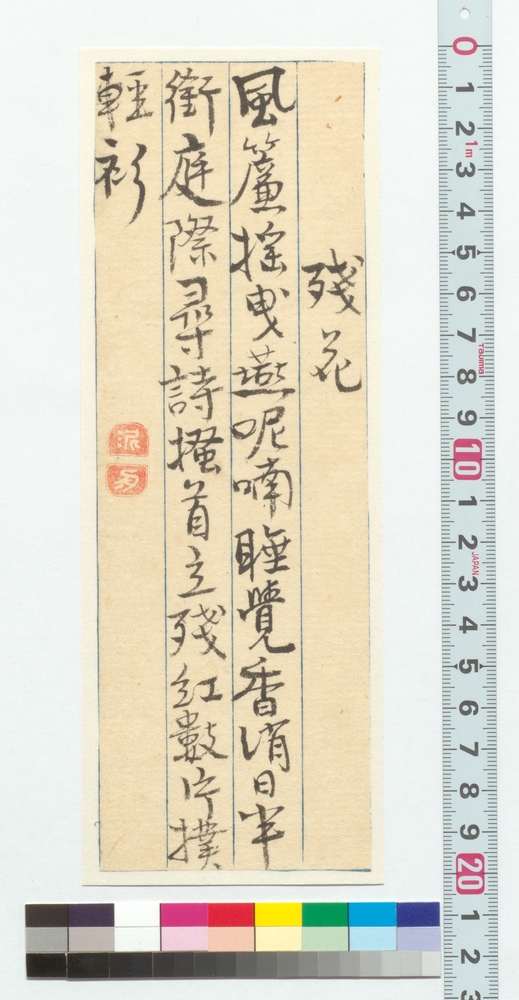 殘花
風簾搖曳燕呢喃睡覺香消日半
銜庭際尋詩搔首立殘紅數片撲
輕衫
0
1
2
1m
3
4
5
6
7
Tajima
8
9
10
1
2
JAPAN
3
4
5
6
7
8
9
20
1
2
3